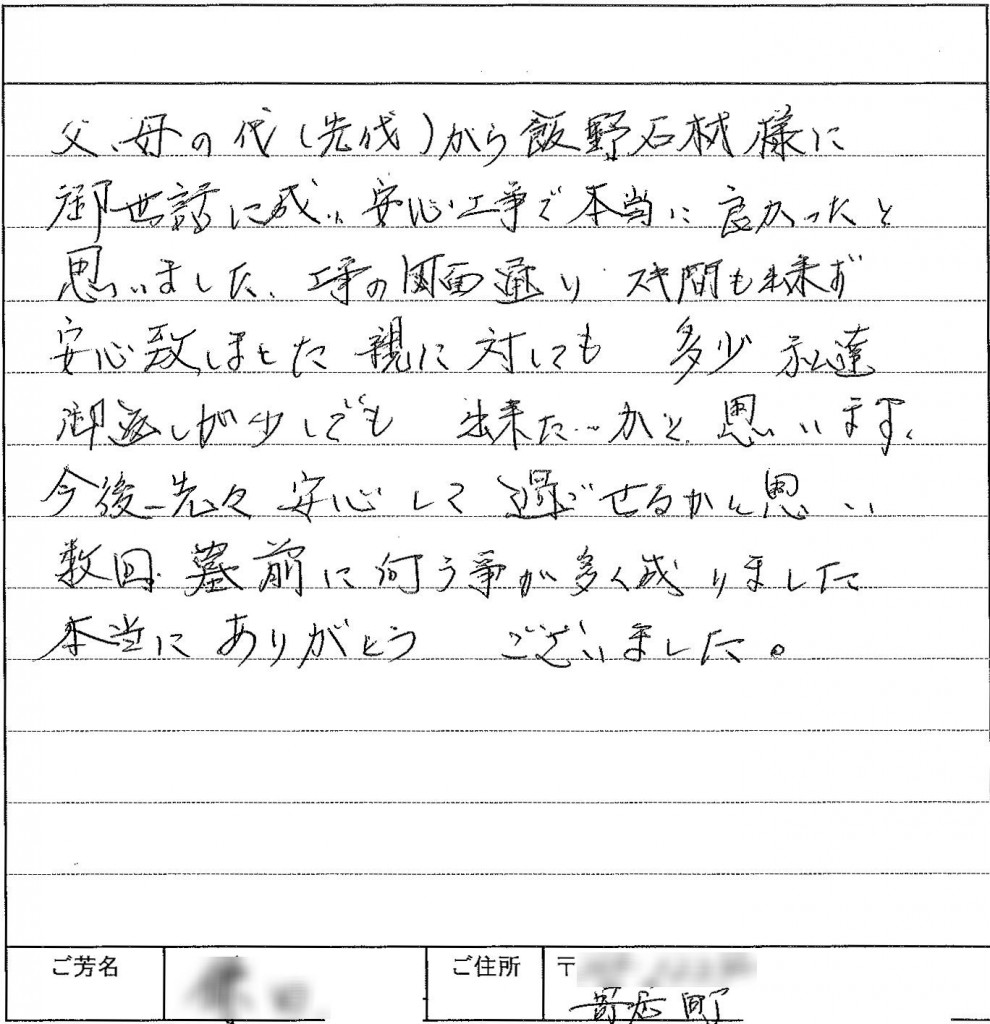 父、母の代(先代)から飯野石材様に
御世話に成い安心工事で本当に良かったと
思いました、工事の図面通り スキ間も出来ず
安心致しました 親に対しても 多少 私達
御返しが少しでも 出来た…かと、思います、
今後先々 安心して 過ごせるかと思い
数回 墓前に伺う事が多く成りました
本当に ありがとう ございました。
ご芳名
ご住所 〒
寄居町